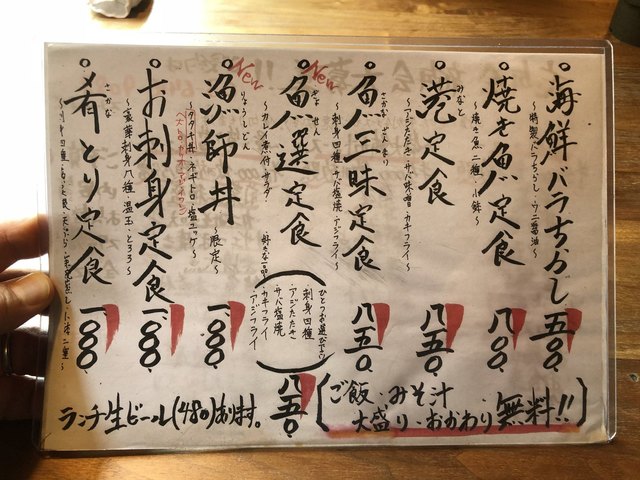 海鮮バラちらし 五〇〇.
〜特製バラちらし・ウニ醤油〜
焼き魚定食 八〇〇.
〜焼き魚二種・小鉢〜
みなと
港定食 八五〇.
〜アジたたき・サバ味噌・カキフライ〜
さかなざんまい
魚三昧定食 八五〇.
〜刺身四種・サバ塩焼・アジフライ〜
New
ぎょせん
魚選定食 八五〇.
〜カレイ煮付・サラダ・好きな一品〜
ひとつお選び下さい
・刺身四種
・アジたたき
・サバ塩焼
・カキフライ
・アジフライ
New
りょうしどん
漁師丼 一、〇〇〇.
〜限定〜
〜タタキ丼・ネギトロ・塩ユッケ〜
お刺身定食 一、〇〇〇.
〜豪華刺身八種・温玉・とろろ〜
さかな
肴とり定食 一、〇〇〇.
ご飯・みそ汁
大盛り・おかわり無料!!
ランチ生ビール(480)あります。